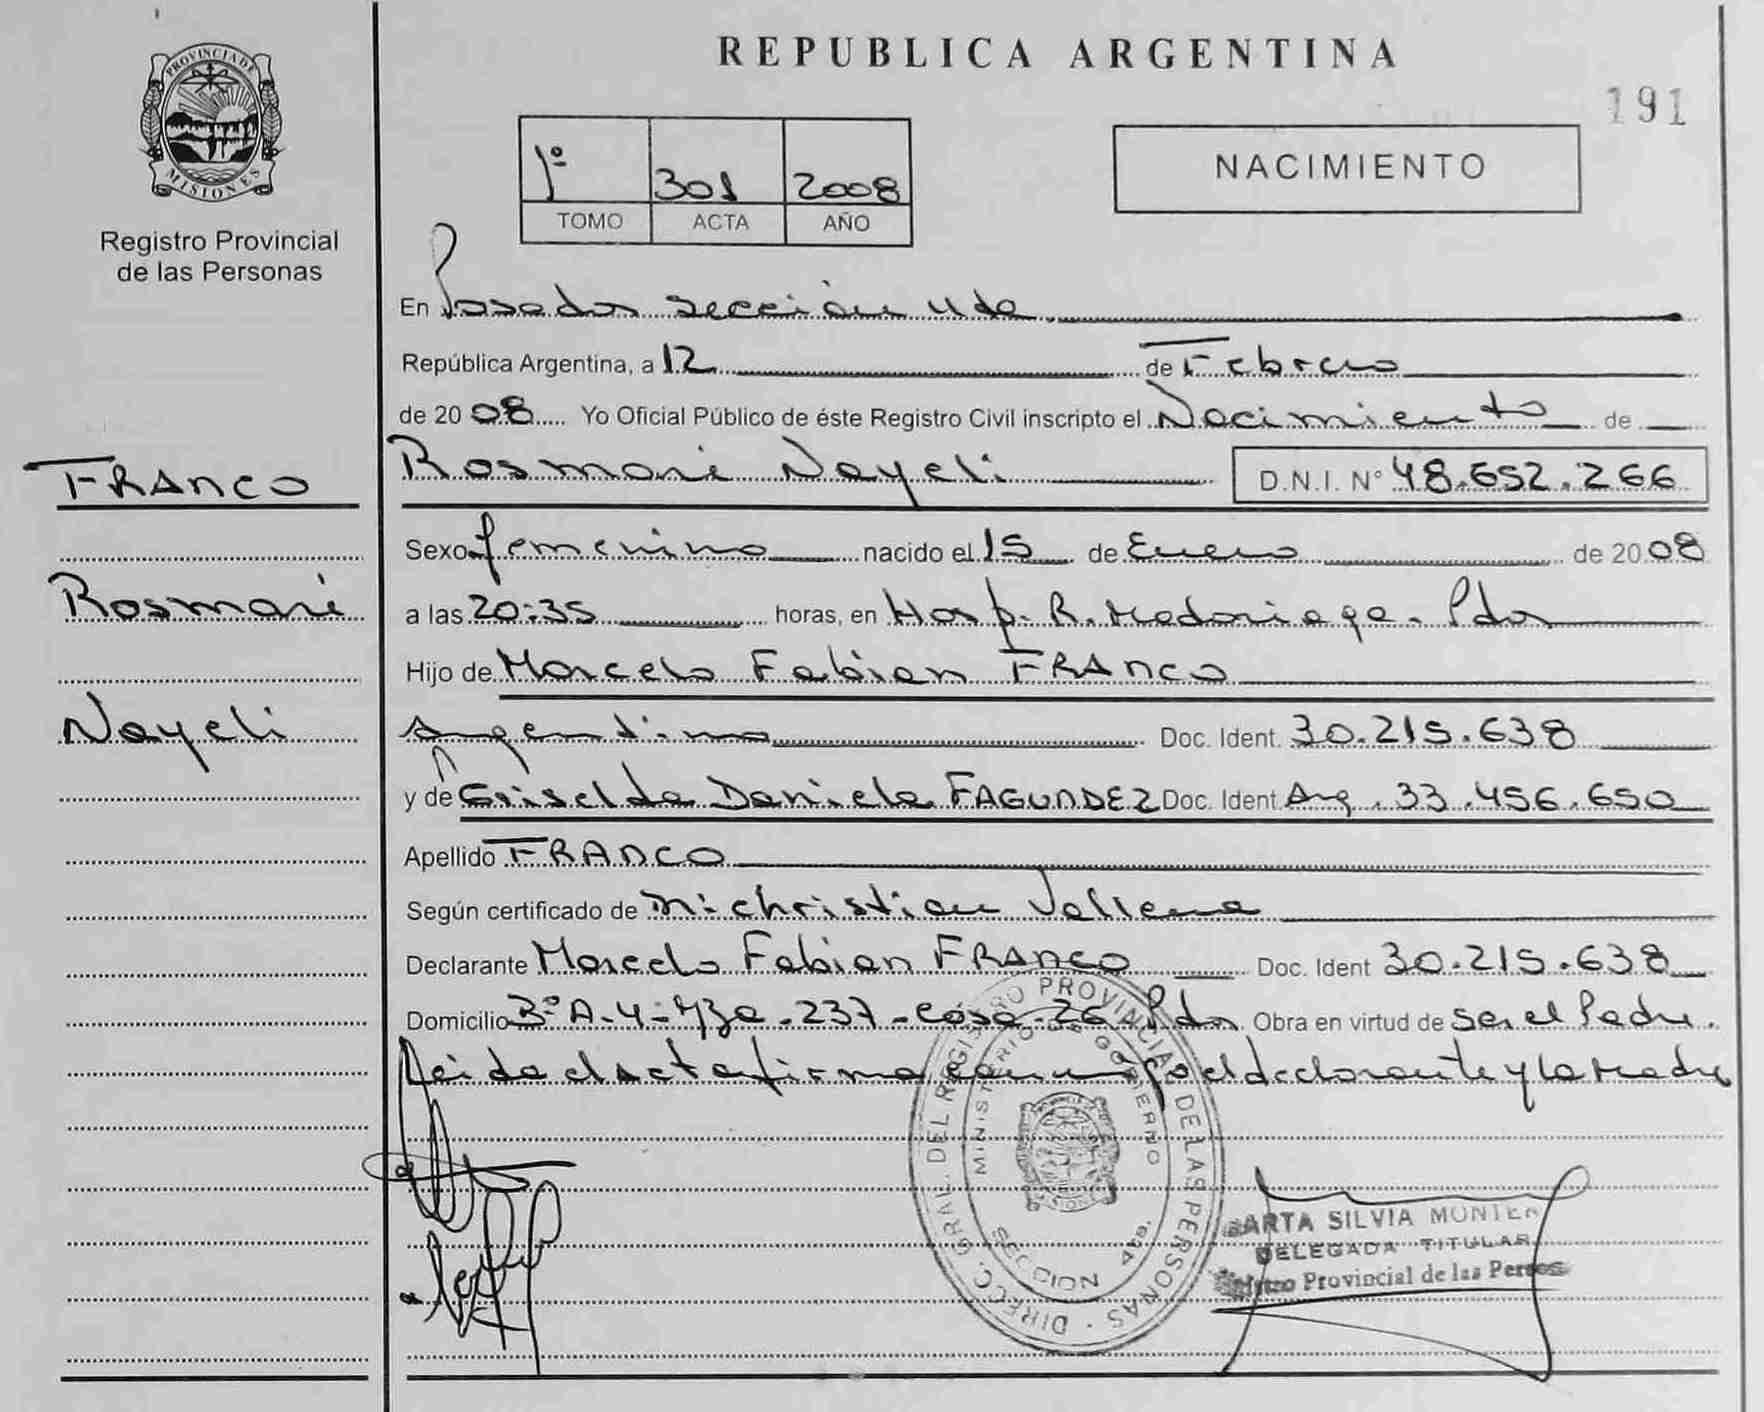 REPUBLICA ARGENTINA
191
PROVINCIA DE MISIONES
Registro Provincial
de las Personas
1º 301 2008
TOMO ACTA AÑO
NACIMIENTO
En Posadas sección 4ta
República Argentina, a 12 de Febrero
de 2008 Yo Oficial Público de éste Registro Civil inscripto el Nacimiento de
Rosmari Nayeli D.N.I. Nº 48.652.266
FRANCO
Rosmari
Nayeli
Sexo femenino nacido el 15 de Enero de 2008
a las 20:35 horas, en Hosp. R. Madariaga. Pdas
Hijo de Marcelo Fabian FRANCO
Argentino Doc. Ident. 30.215.638
y de Griselda Daniela FAGUNDEZ Doc. Ident Arg. 33.456.650
Apellido FRANCO
Según certificado de christian
Declarante Marcelo Fabian FRANCO Doc. Ident 30.215.638
Domicilio Bº A-4- Mza -237- Casa-26 Pdas Obra en virtud de ser el Padre.
Leida el acta firma conmigo el declarante y la Madre
DIRECC. GRAL. DEL REGISTRO PROVINCIAL DE LAS PERSONAS
MINISTERIO DE GOBIERNO
SECCION 4ta.
SILVIA
DELEGADA TITULAR
Provincial de las